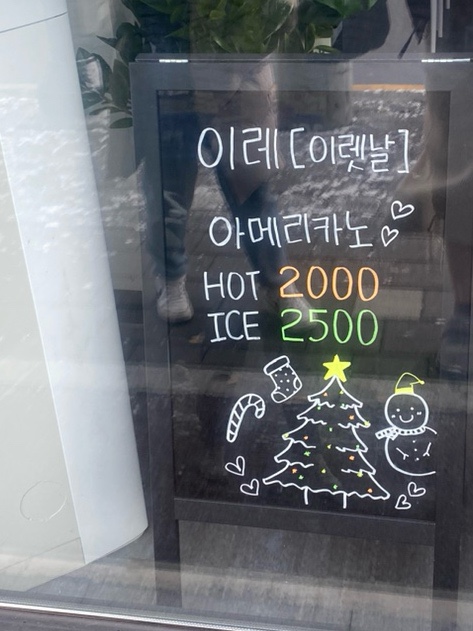 이레 [이렛날]
아메리카노
HOT 2000
ICE 2500